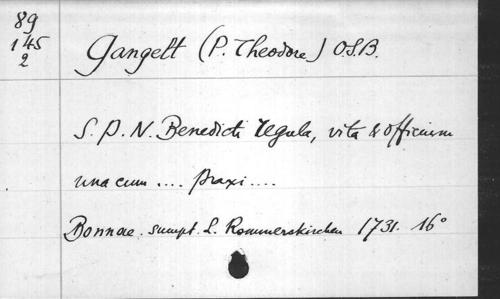 89
145
2
Gangelt (P. Theodore) O.S.B.
S. P. N. Benedicti regula, vita & officium
una cum .... praxi ....
Bonnae. sumpt. L. Rommerskirchen 1731. 16°